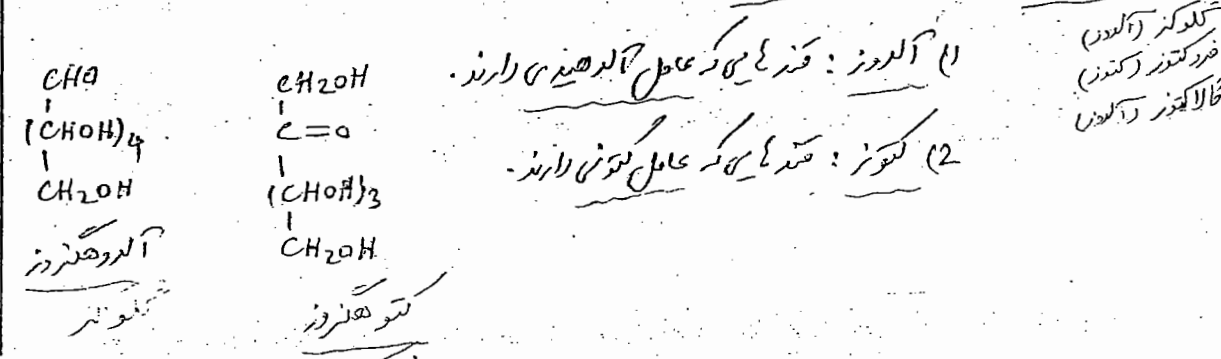 گلوکز (آلدوز)
فروکتوز (کتوز)
گالاکتوز (آلدوز)
1) آلدوز : قندهایی که عامل آلدهیدی دارند.
2) کتوز : قندهایی که عامل کتونی دارند.
CH2OH
C=O
(CHOH)3
CH2OH
کتوهگزوز
CHO
(CHOH)4
CH2OH
آلدوهگزوز